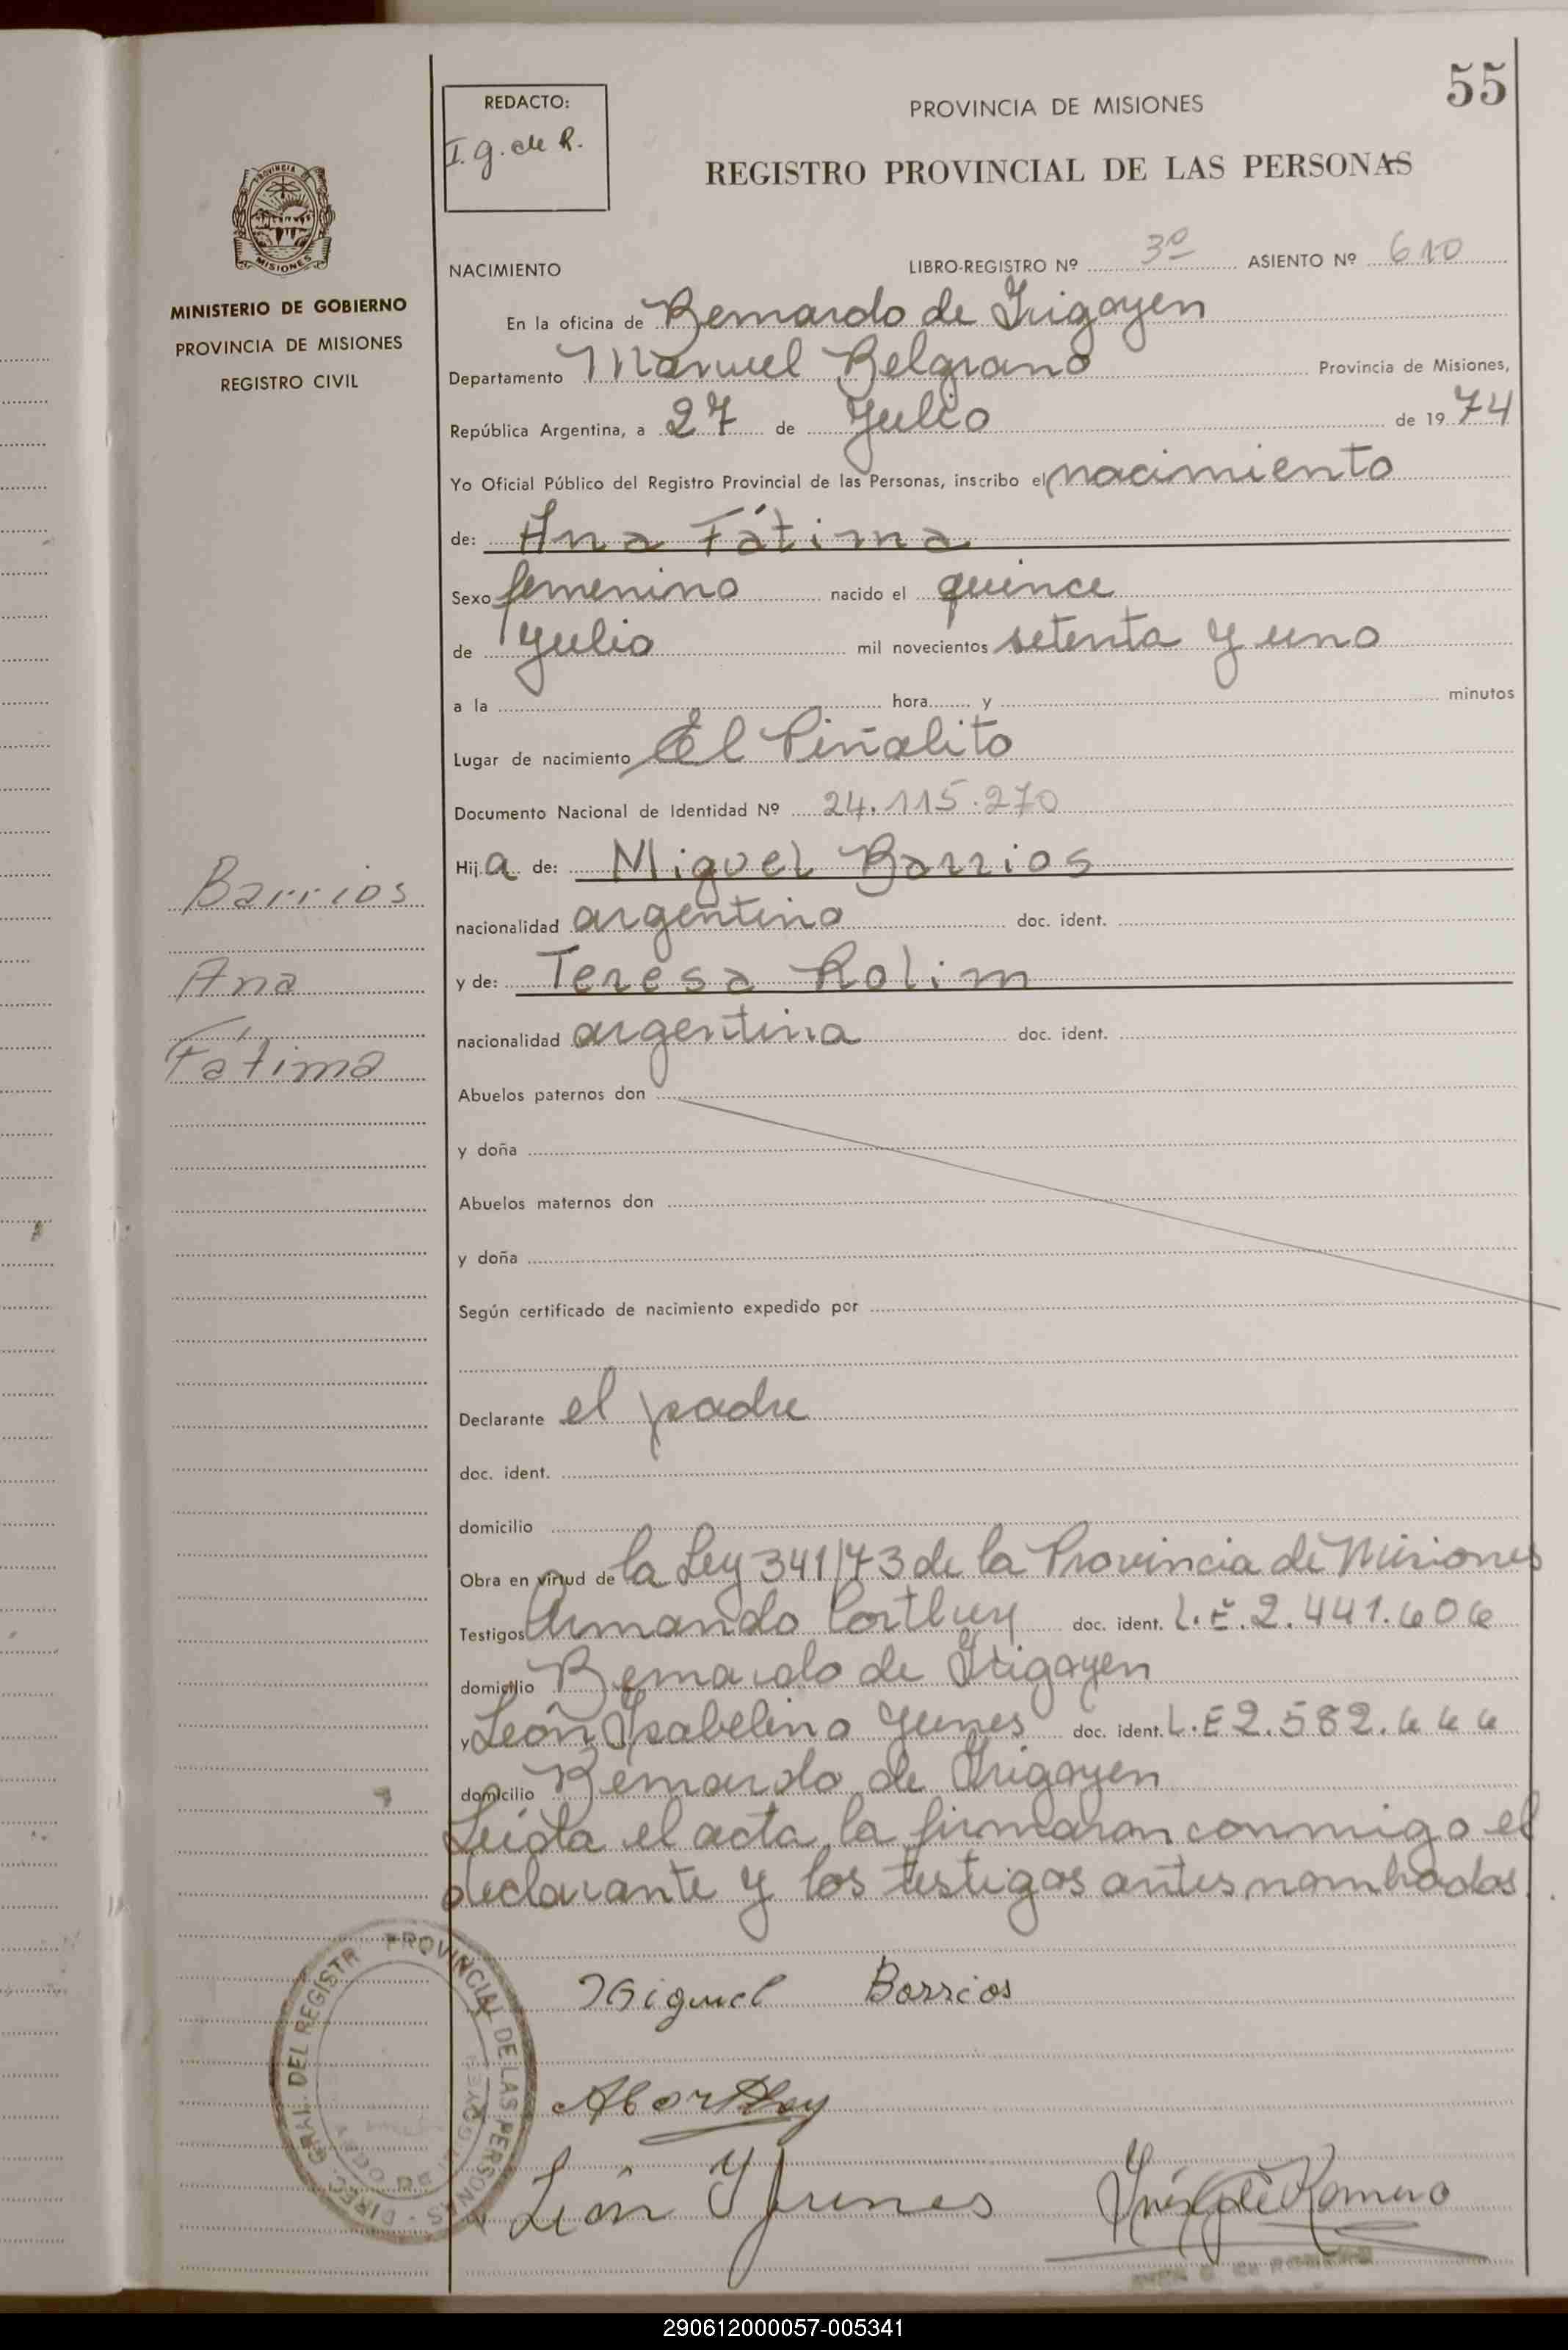 55
REDACTO:
I. g. de R.
PROVINCIA DE MISIONES
REGISTRO PROVINCIAL DE LAS PERSONAS
PROVINCIA DE
MISIONES
MINISTERIO DE GOBIERNO
PROVINCIA DE MISIONES
REGISTRO CIVIL
NACIMIENTO LIBRO-REGISTRO Nº 3º ASIENTO Nº 610
En la oficina de Bernardo de Irigoyen
Departamento Manuel Belgrano Provincia de Misiones,
República Argentina, a 27 de Julio de 1974
Yo Oficial Público del Registro Provincial de las Personas, inscribo el nacimiento
de: Ana Fátima
Sexo femenino nacido el quince
de Julio mil novecientos setenta y uno
a la hora y minutos
Lugar de nacimiento El Piñalito
Documento Nacional de Identidad Nº 24.115.270
Hija de: Miguel Barrios
Barrios
nacionalidad argentino doc. ident.
Ana
y de: Teresa Rolim
nacionalidad argentina doc. ident.
Fátima
Abuelos paternos don
y doña
Abuelos maternos don
y doña
Según certificado de nacimiento expedido por
Declarante el padre
doc. ident.
domicilio
Obra en virtud de la Ley 341/73 de la Provincia de Misiones
Testigos Armando doc. ident. L.E. 2.441.606
domicilio Bernardo de Irigoyen
y León Ysabelino Yunes doc. ident. L.E 2.582.666
domicilio Bernardo de Irigoyen
Leída el acta, la firmaron conmigo el
declarante y los testigos antes nombrados.
DIREC. GRAL. DEL REGISTR PROVINCIAL DE LAS PERSONAS
Miguel Barrios
León Y Yunes
Inés G de Romero
290612000057-005341